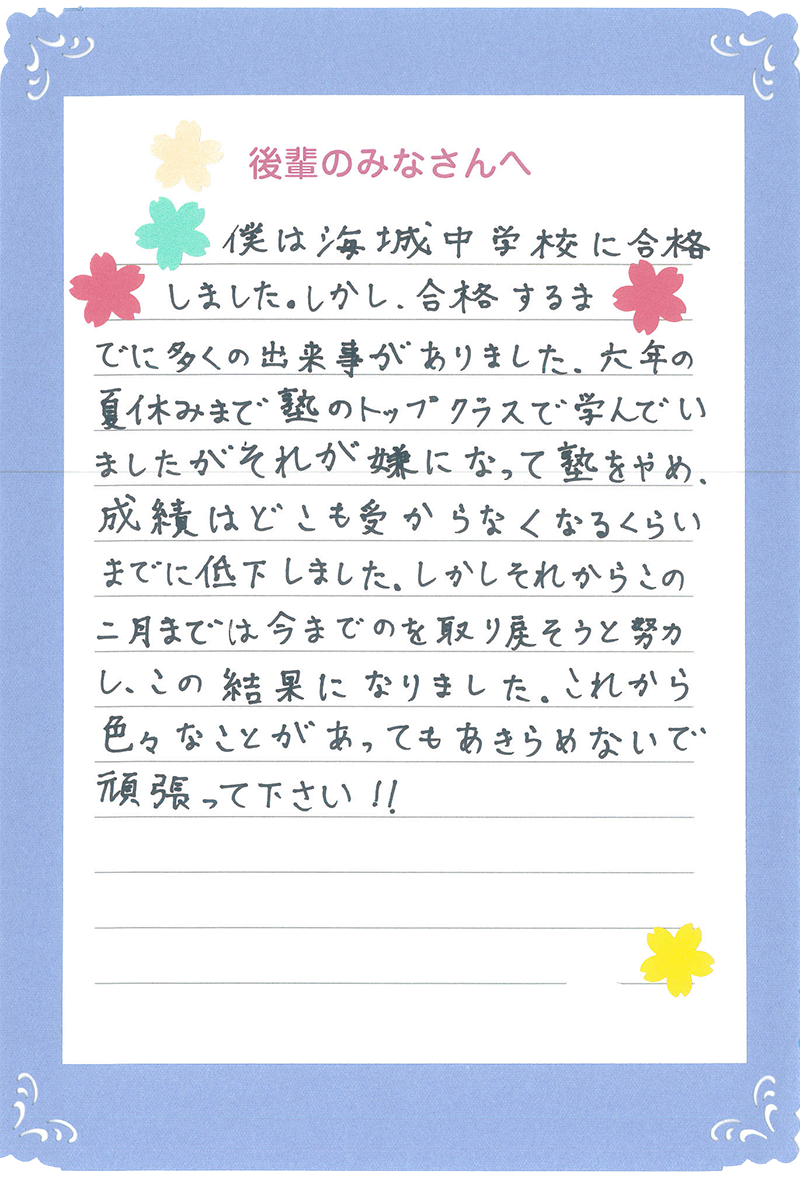 後輩のみなさんへ
僕は海城中学校に合格
しました。しかし、合格するま
でに多くの出来事がありました。六年の
夏休みまで塾のトップクラスで学んでい
ましたがそれが嫌になって塾をやめ、
成績はどこも受からなくなるくらい
までに低下しました。しかしそれからこの
二月までは今までのを取り戻そうと努力
し、この結果になりました。これから
色々なことがあってもあきらめないで
頑張って下さい!!